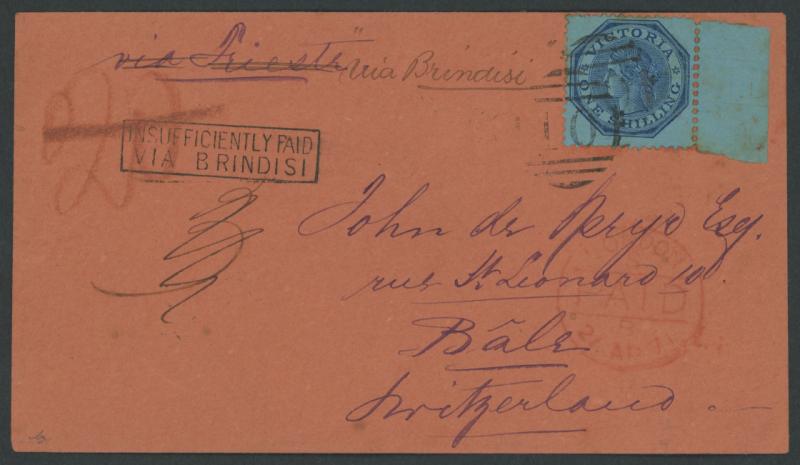 via Trieste via Brindisi
VICTORIA
ONE SHILLING
INSUFFICIENTLY PAID
VIA BRINDISI
John de Peryo Esq.
rue St. Leonard 10.
Bâle
Switzerland.
PAID